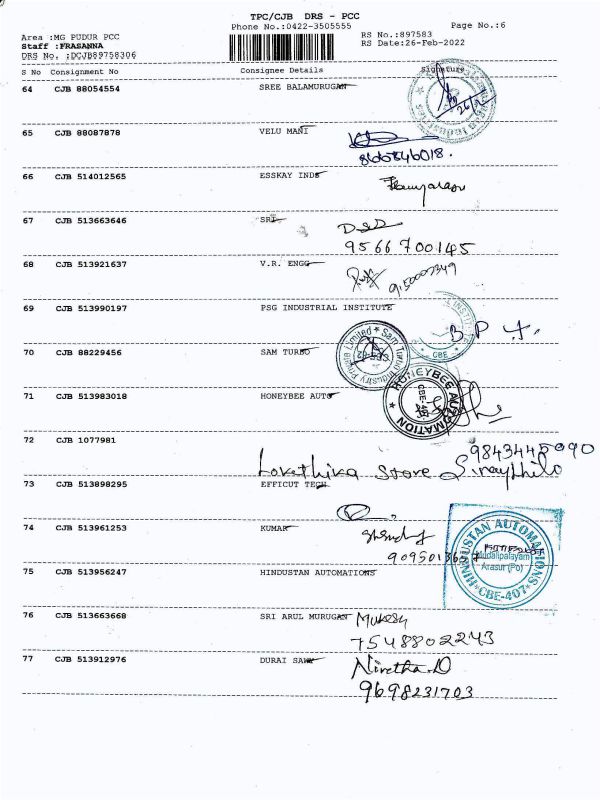 TPC/CJB DRS - PCC
Phone No.:0422-3505555
Page No.:6
Area :MG PUDUR PCC
RS No.:897583
Staff :PRASANNA
RS Date:26-Feb-2022
DRS No. :DCJB89758306
S No Consignment No Consignee Details Signature
64 CJB 88054554 SREE BALAMURUGAN
65 CJB 88087878 VELU MANI
66 CJB 514012565 ESSKAY INDS
67 CJB 513663646 SRI
9566700145
68 CJB 513921637 V.R. ENGG
69 CJB 513990197 PSG INDUSTRIAL INSTITUTE
CBE
70 CJB 88229456 SAM TURBO
71 CJB 513983018 HONEYBEE AUTO
HONEYBEE AUTOMATION
72 CJB 1077981
9843445090
Lokathika Store
73 CJB 513898295 EFFICUT TECH
74 CJB 513961253 KUMAR
75 CJB 513956247 HINDUSTAN AUTOMATIONS
HINDUSTAN AUTOMATIONS
Arasur (Po)
CBE-407
76 CJB 513663668 SRI ARUL MURUGAN Mukesh
7548802243
77 CJB 513912976 DURAI SAWM Nivetha.D
9698231703